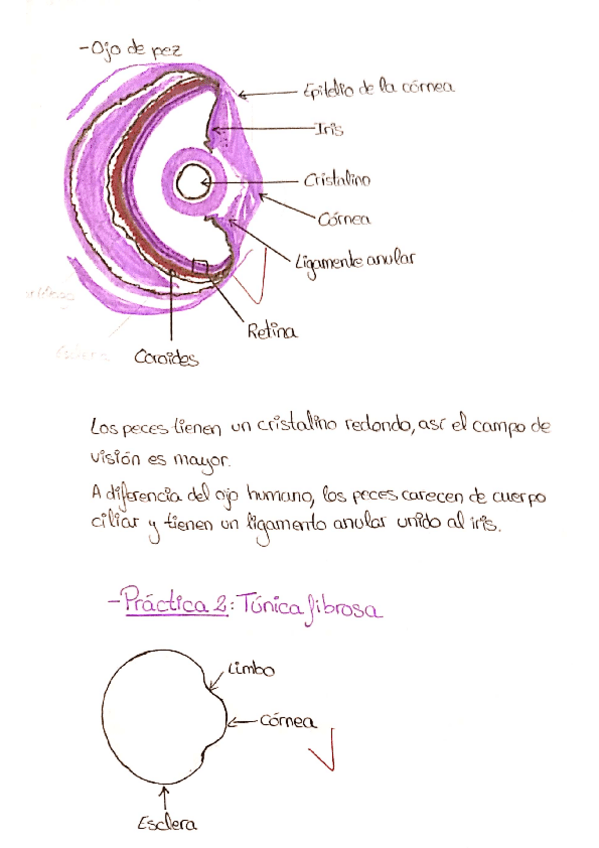 -Ojo de pez
Epitelio de la córnea
Iris
Cristalino
Córnea
Ligamento anular
Retina
Coroides
Los peces tienen un cristalino redondo, así el campo de
visión es mayor.
A diferencia del ojo humano, los peces carecen de cuerpo
ciliar y tienen un ligamento anular unido al iris.
-Práctica 2: Túnica fibrosa
Limbo
Córnea
Esclera